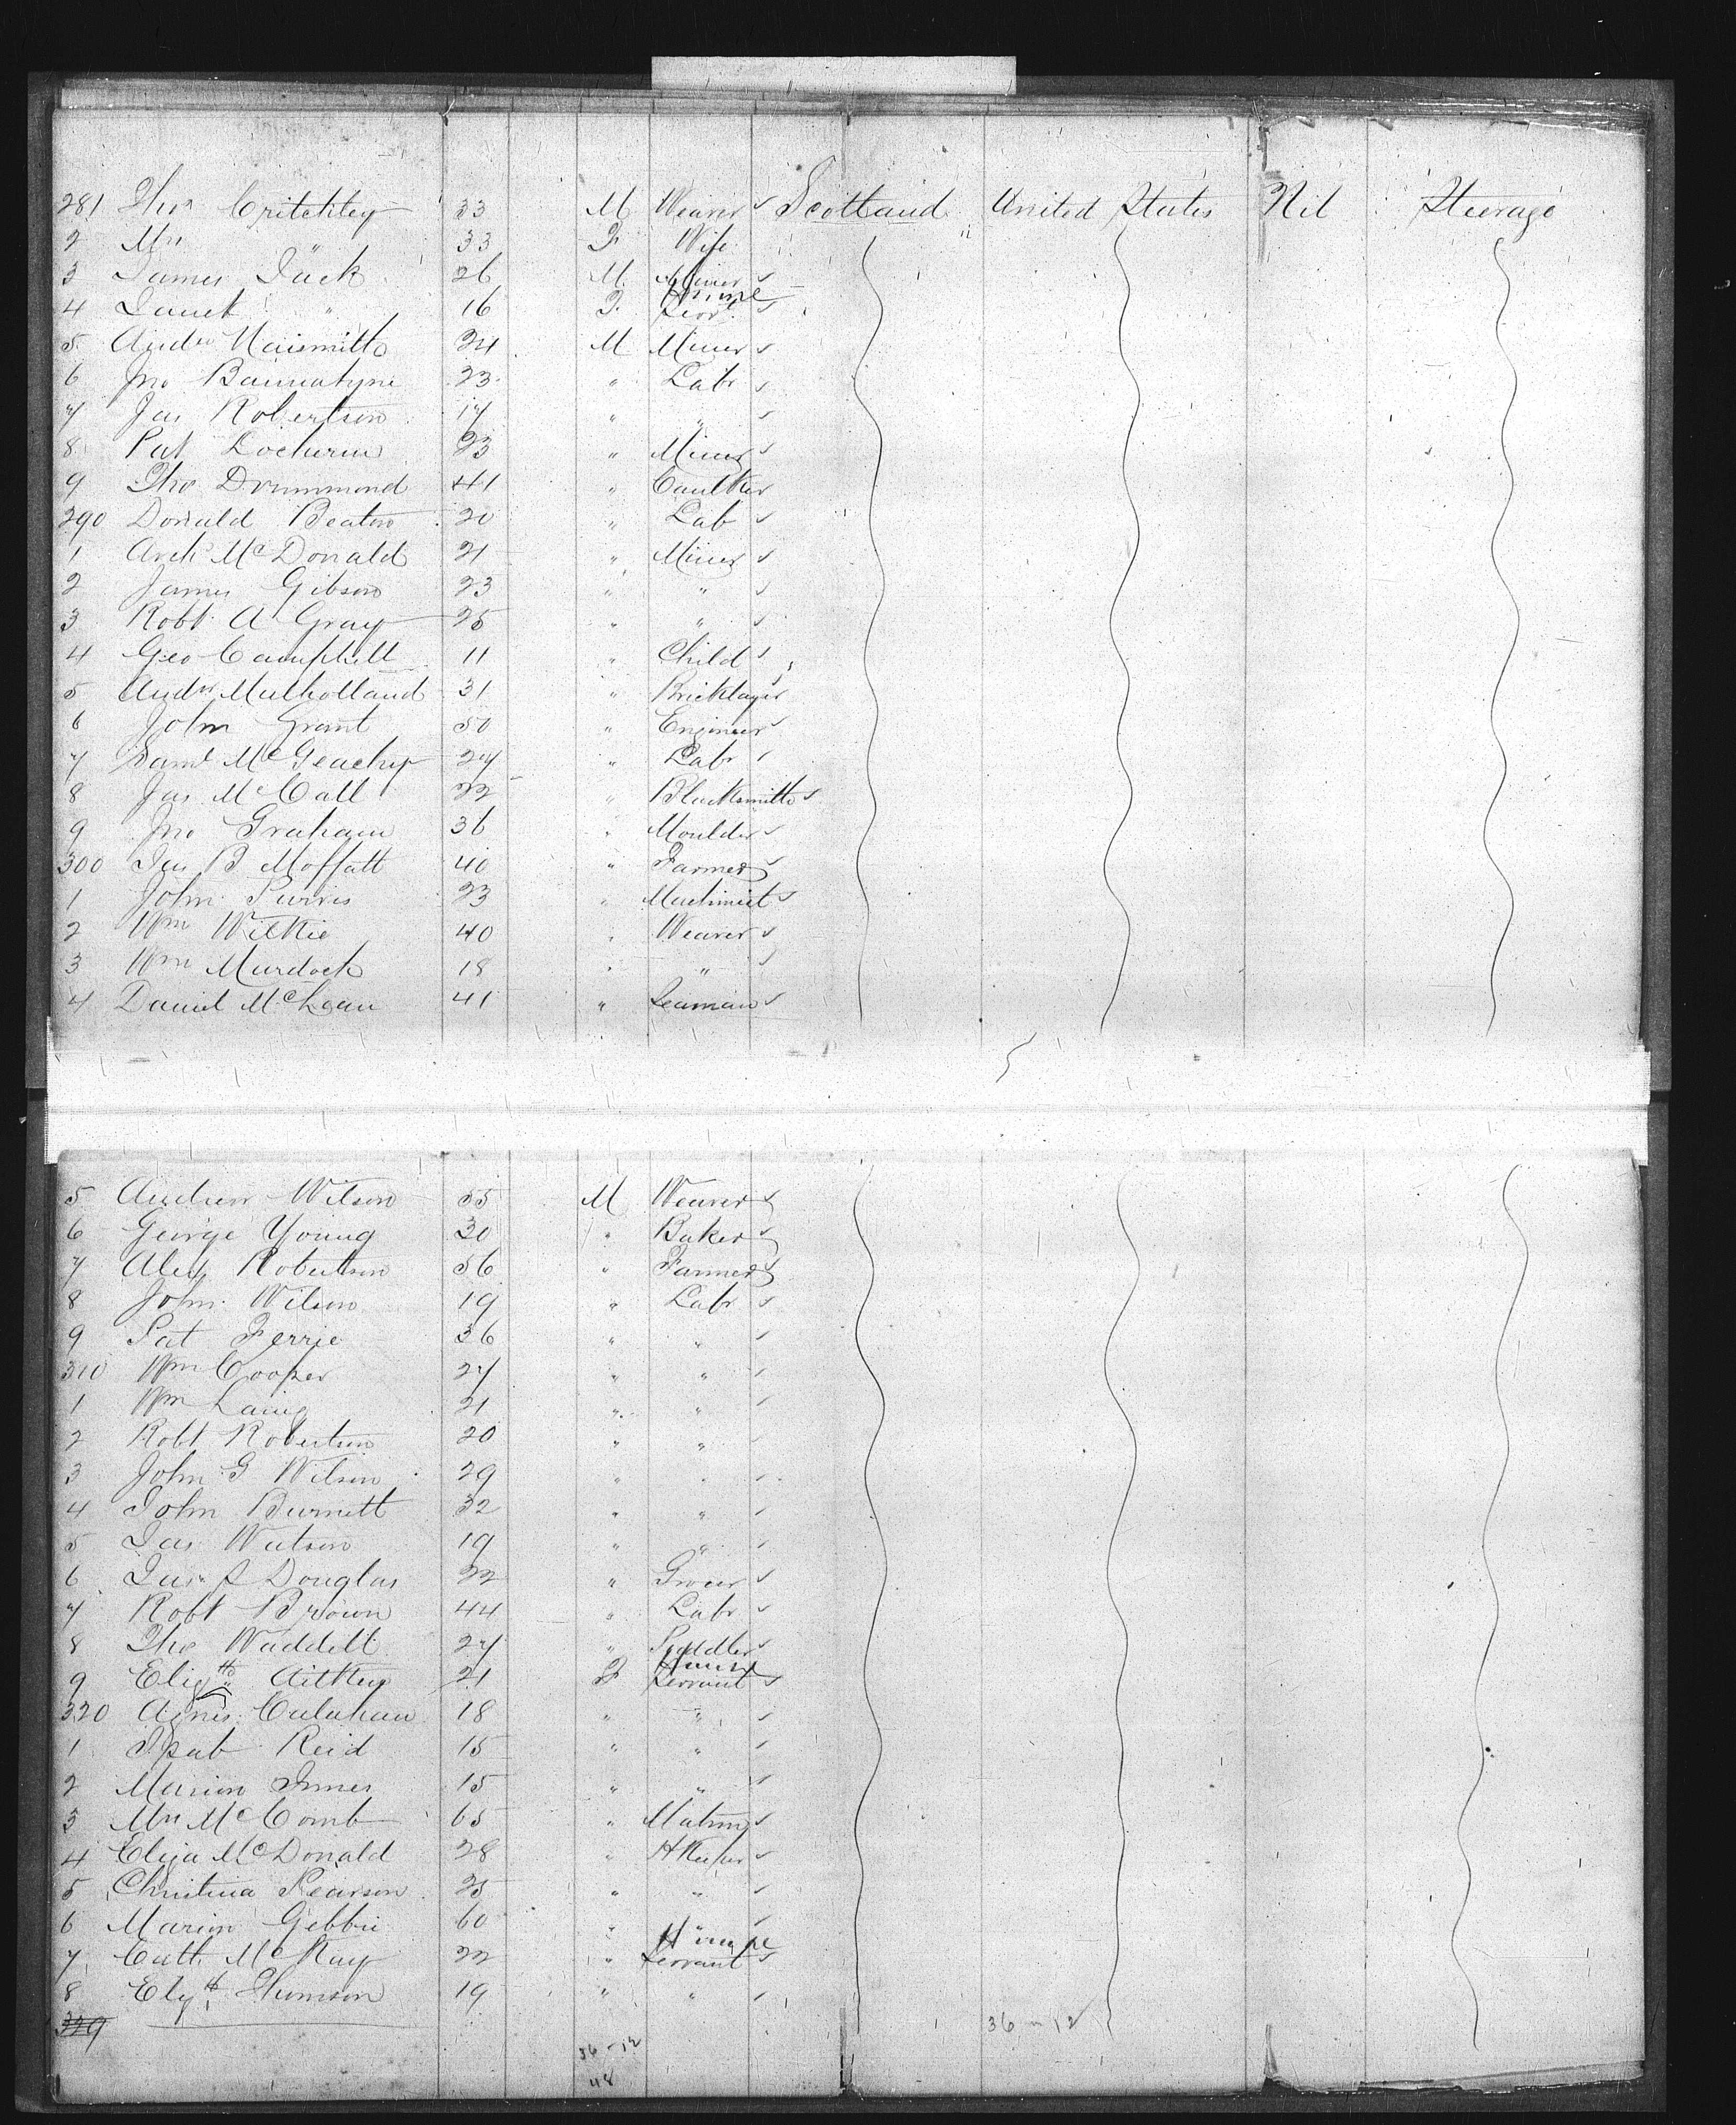 281 Thos Critchley 33 M Weaver Scotland United States Nil Steerage
2 Mrs " 33 F Wife
3 James Jack 26 M Miner
4 Janet " 16 F House Servt
5 Andw Naismith 24 M Miner
6 Jno Bannatyne 23 " Labr
7 Jas Robertson 17 " "
8 Pat Docherm 23 " Miner
9 Tho Drummond 41 " Caulker
290 Donald Beaton 20 " Lab
1 Arch McDonald 21 " Miner
2 James Gibson 23 " "
3 Robt A Gray 25 " "
4 Geo Campbell 11 " Child
5 Andw Mulholland 31 " Bricklayer
6 John Grant 50 " Engineer
7 Saml McGeachy 27 " Labr
8 Jas McCall 22 " Blacksmith
9 Jno Graham 36 " Moulder
300 Jas B Moffatt 40 " Farmer
1 John Purvis 23 " Machinist
2 Wm Wilkie 40 " Weaver
3 Wm Murdoch 18 " "
4 Daniel McLean 41 " Seaman
5 Andrew Wilson 55 M Weaver
6 George Young 30 " Baker
7 Alex Robertson 56 " Farmer
8 John Wilson 19 " Labr
9 Pat Ferrie 36 " "
310 Wm Cooper 27 " "
1 Wm Laing 21 " "
2 Robt Robertson 20 " "
3 John G Wilson 29 " "
4 John Burnett 32 " "
5 Jas Watson 19 " "
6 Jas Douglas 22 " Grocer
7 Robt Brown 44 " Labr
8 Tho Waddell 27 " Puddler
9 Elizth Aitken 21 F House Servant
320 Agnes Calahan 18 " "
1 Isab Reid 15 " "
2 Marion Innes 15 " "
3 Mrs McComb 65 " Matron
4 Eliza McDonald 28 " HKeeper
5 Christina Pearson 25 " "
6 Marion Gebbie 60 " "
7 Cath McKay 22 " House Servant
8 Elizth Thomson 19 " "
329
36-12 36-12
48